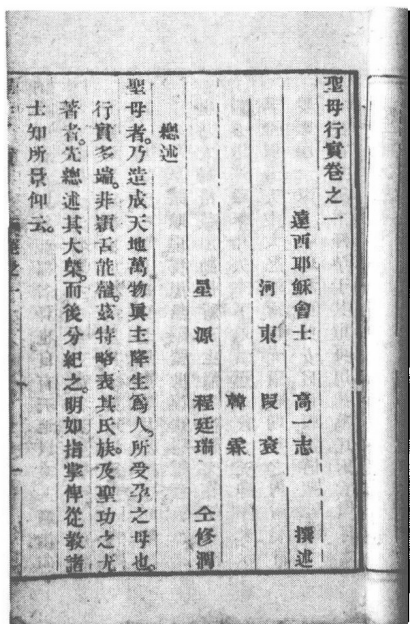 聖母行實卷之一
遠西耶穌會士 高一志 撰述
河東 段袞
韓霖
星源 程廷瑞 仝修潤
總述
聖母者。乃造成天地萬物眞主降生爲人。所受孕之母也。
行實多端。非穎舌能罄。茲特略表其氏族。及聖功之尤
著者。先總述其大槩。而後分紀之。明如指掌俾從敎諸
士知所景仰云。